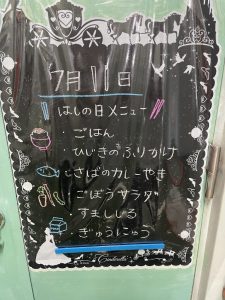 7月11日
はしの日メニュー
・ごはん
・ひじきのふりかけ
・さばのカレーやき
・ごぼうサラダ
・すましじる
・ぎゅうにゅう
Cinderella